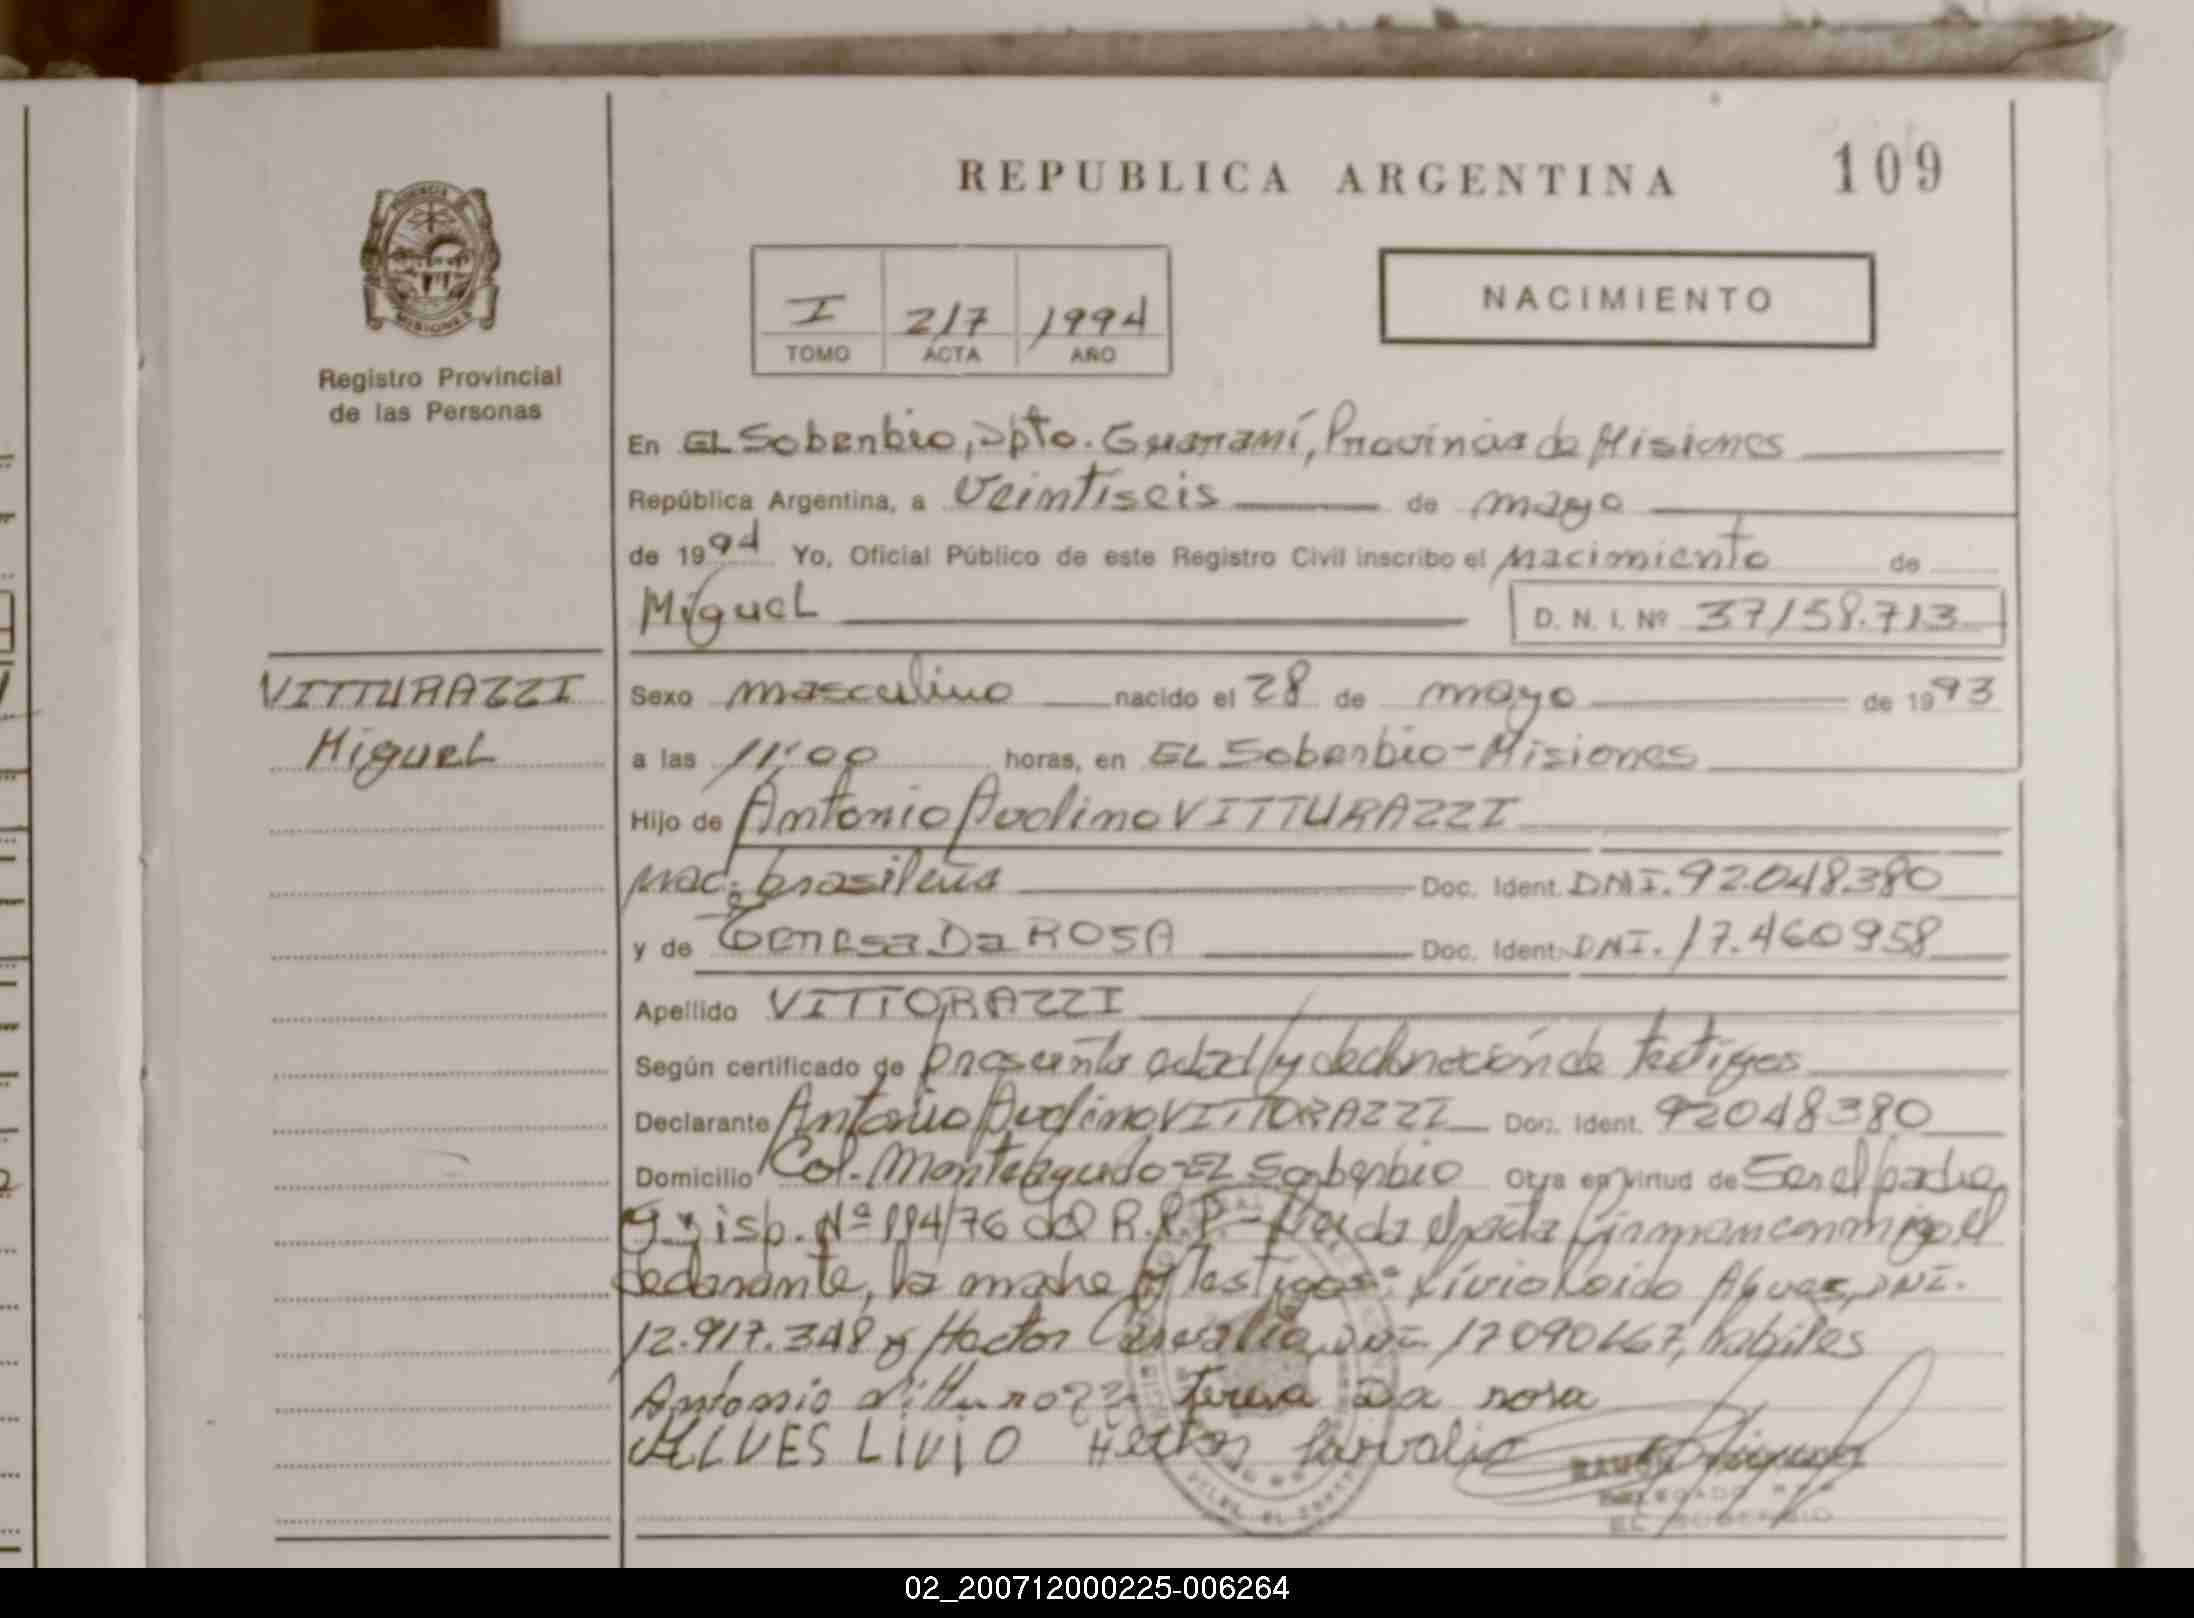 REPUBLICA ARGENTINA
109
I 217 1994
TOMO ACTA AÑO
NACIMIENTO
MISIONES
Registro Provincial
de las Personas
En EL Soberbio, Dpto. Guaraní, Provincia de Misiones
República Argentina, a Veintiseis de mayo
de 1994 Yo, Oficial Público de este Registro Civil inscribo el nacimiento de
Miguel
D. N. I. Nº 37158.713
VITTURAZZI
Miguel
Sexo masculino nacido el 28 de mayo de 1993
a las 11:00 horas, en EL Soberbio-Misiones
Hijo de Antonio Avelino VITTURAZZI
nac. brasileña Doc. Ident. DNI. 92.048.380
y de Teresa Da ROSA Doc. Ident. DNI. 17.460958
Apellido VITTORAZZI
Según certificado de presunta edad y declaración de testigos
Declarante Antonio Avelino VITTORAZZI Don. Ident. 92048380
Domicilio Col. Monteagudo-EL Soberbio Otra en virtud de Ser el padre
y Disp. Nº 114/76 del R.P.P.- Leida el acta firman conmigo el
declarante, la madre y testigos: Livio Alves, DNI.
12.917.348 y Hector Carvalio DNI 17090667, habiles
Antonio Vitturazzi Teresa Da rosa
ALVES LIVIO Hector Carvalio
DELEGADO
EL SOBERBIO
02_200712000225-006264